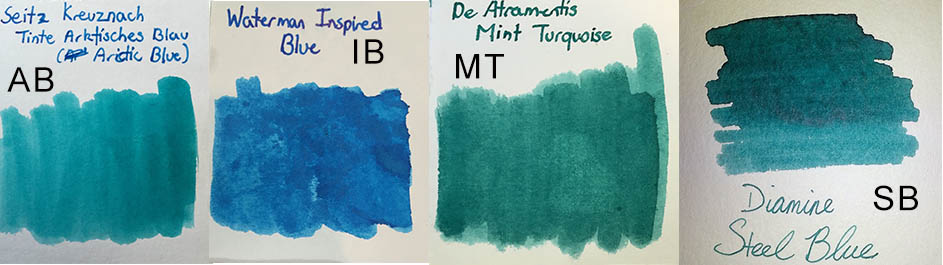 Seitz Kreuznach
Tinte Arktisches Blau
( Arictic Blue)
AB
Waterman Inspired
Blue
IB
De Atramentis
Mint Turquoise
MT
Diamine
Steel Blue
SB